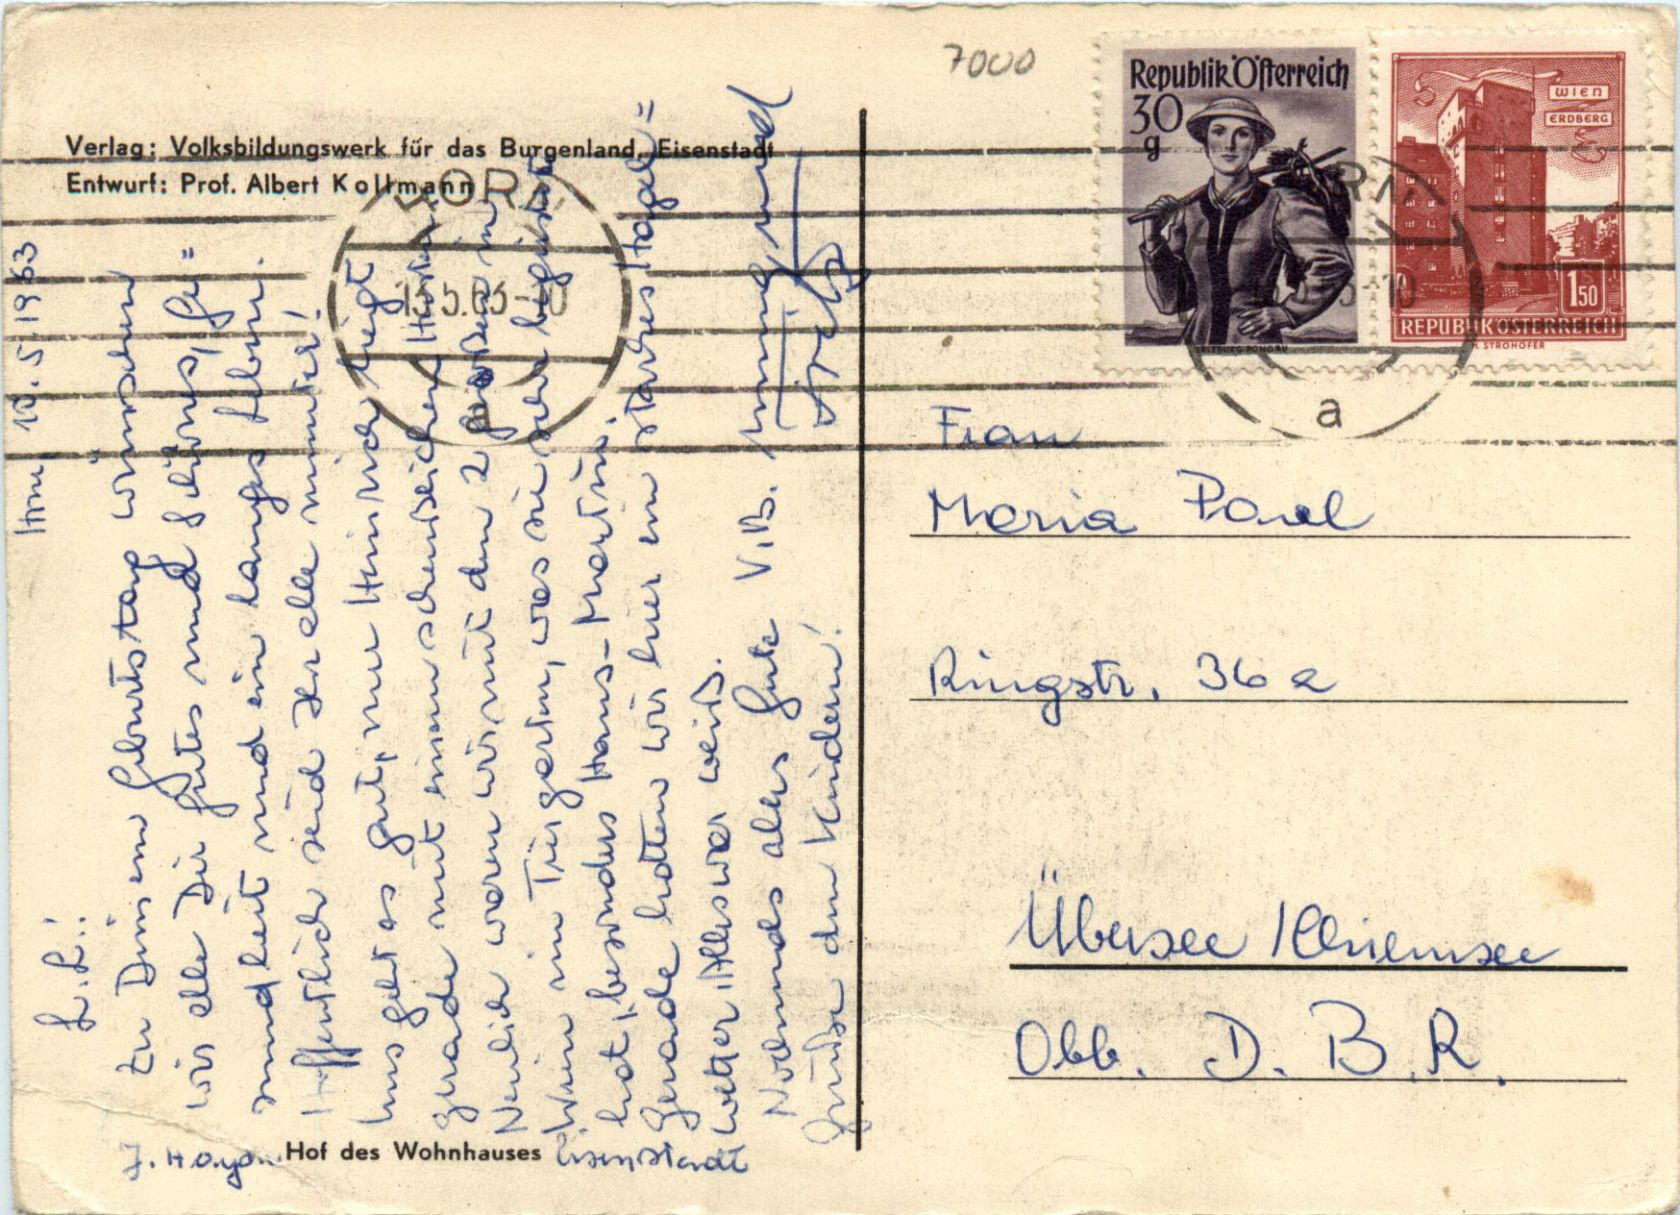 7000
Verlag: Volksbildungswerk für das Burgenland, Eisenstadt
Entwurf: Prof. Albert Kollmann
Republik Österreich
30
g
SALZBURG PONGAU
WIEN
ERDBERG
1 50
REPUBLIK ÖSTERREICH
H. STROHOFER
HORN
13.5.63-10
a
HORN
a
Horn 10.5.1963
L. L.!
Zu Deinem Geburtstag wünschen
wir alle Dir Gutes und Schönes, Ge=
sundheit und ein langes Leben.
Hoffentlich seid Ihr alle munter!
Uns geht es gut, nur Heinrich liegt
gerade mit einem scheußlichen Husten.
Neulich waren wir mit den 2 Großen in
Wien im Tiergarten, was sie sehr begeistert
hat, besonders Hans-Martin.
Gerade hatten wir hier ein starkes Hagel=
wetter, Alles war weiß.
Nochmals alles Gute V.B. und
Grüße den Kindern!
J. Haydn Hof des Wohnhauses Eisenstadt
Frau
Maria Paul
Ringstr. 36 a
Übersee / Chiemsee
Obb. D. B. R.